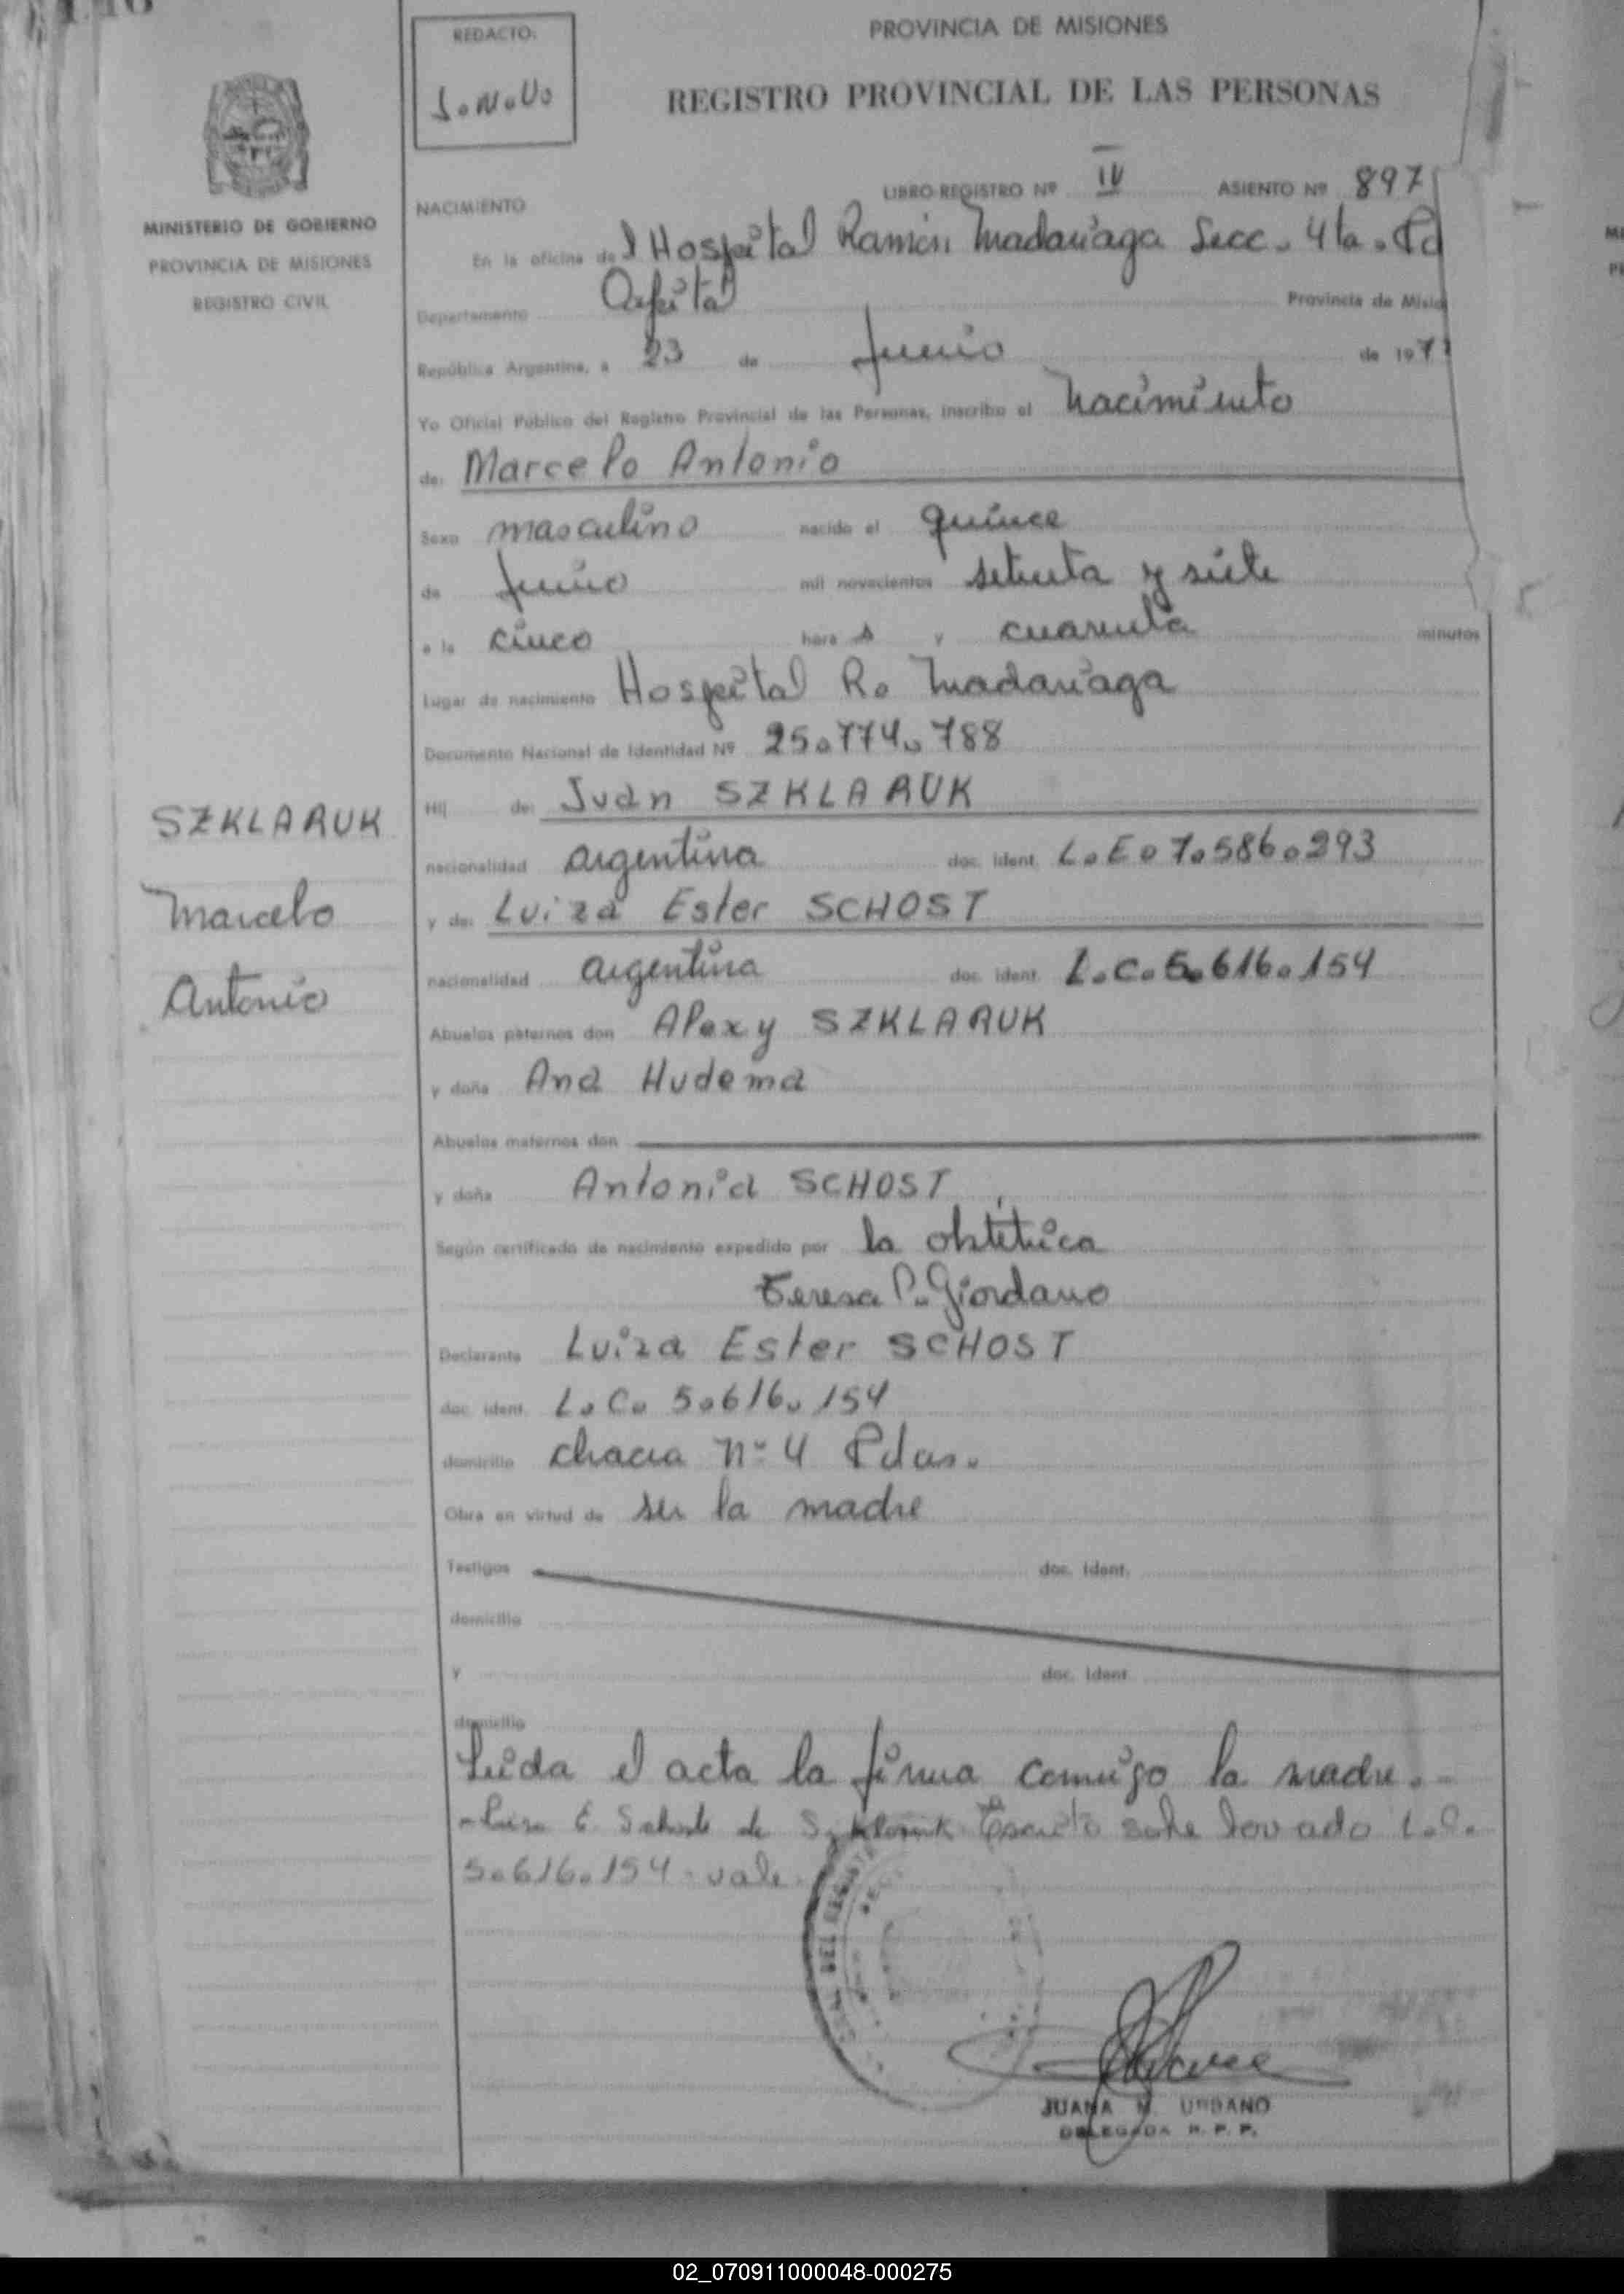 REDACTO:
J.N.U.
PROVINCIA DE MISIONES
REGISTRO PROVINCIAL DE LAS PERSONAS
MINISTERIO DE GOBIERNO
PROVINCIA DE MISIONES
REGISTRO CIVIL
LIBRO-REGISTRO Nº IV ASIENTO Nº 897
NACIMIENTO
En la oficina del Hospital Ramón Madariaga Secc. 4ta. Pd
Departamento Capital Provincia de Misio
República Argentina, a 23 de junio de 197
Yo Oficial Público del Registro Provincial de las Personas, inscribo el nacimiento
de: Marcelo Antonio
Sexo masculino nacido el quince
de junio mil novecientos setenta y siete
a la cinco hora s y cuarenta minutos
Lugar de nacimiento Hospital R. Madariaga
Documento Nacional de Identidad Nº 25.774.788
Hij de: Juan SZKLARUK
nacionalidad argentina doc. ident. L.E. 7.586.293
y de: Luiza Ester SCHOST
nacionalidad argentina doc. ident. L.C. 5.616.154
Abuelos paternos don Alexy SZKLARUK
y doña Ana Hudema
Abuelos maternos don
y doña Antonia SCHOST
Según certificado de nacimiento expedido por la obstétrica
Teresa P. Giordano
Declarante Luiza Ester SCHOST
doc. ident. L.C. 5.616.154
domicilio chacra Nº 4 Pdas.
Obra en virtud de ser la madre
Testigos doc. ident.
domicilio
y doc. ident.
domicilio
Leida el acta la firma conmigo la madre.-
Escrito sobre lavado L.C.
5.616.154 - vale.
SZKLARUK
Marcelo
Antonio
JUANA N. URBANO
DELEGADA R. P. P.
02_070911000048-000275